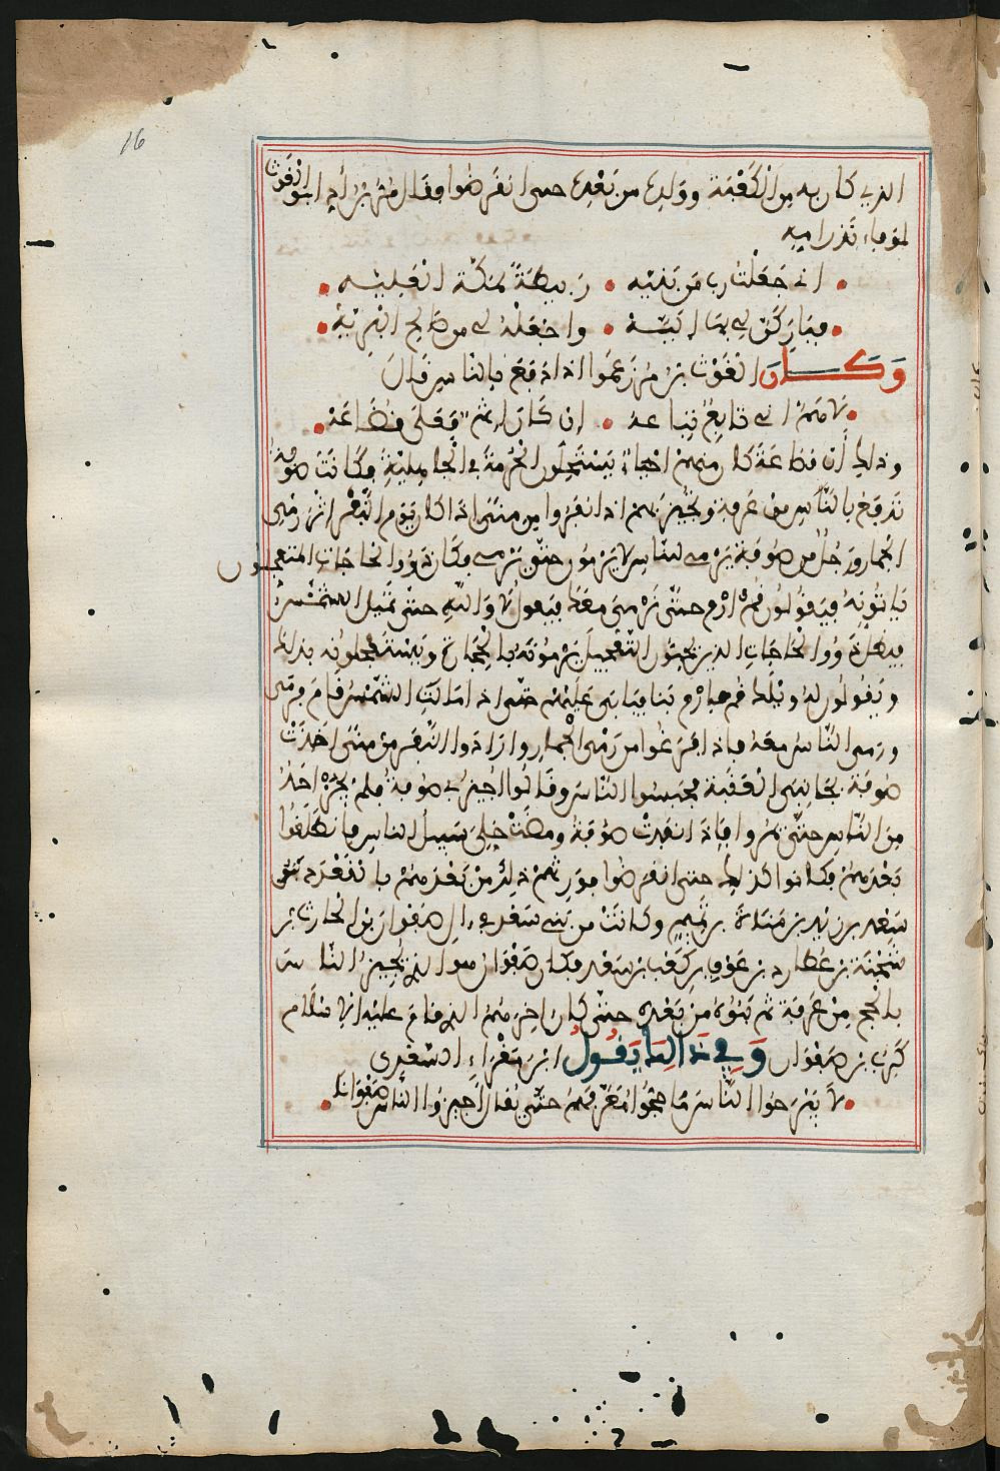 16
الذي كان به من الكعبة وولده من بعده حتى انقرضوا وقال مر بن أد ابو الغوث
لوفاء نذر أمه
اني جعلت رب من بنيه • ربيطة بمكة العليه
فباركن لي بها اليه • واجعله لي من صالح البريه
وكان الغوث بن مر زعموا اذا دفع بالناس قال
لاهم اني تابع تباعه • ان كان اثم فعلى قضاعه
وذلك أن قضاعة كان منهم احياء يستحلون الحرمة في الجاهلية وكانت صوفة
تدفع بالناس من عرفة وتجيز بهم اذا نفروا من منى اذا كان يوم النفر اتوا رمي
الجمار ورجل من صوفة يرمي للناس لا يرمون حتى يرمي وكان ذوو الحاجات المتعجلون
ياتونه فيقولون قم فارم حتى نرمي معك فيقول لا والله حتى تميل الشمس
فيظل ذوو الحاجات الذين يحبون التعجيل يرمونه بالحجارة ويستعجلونه بذلك
ويقولون له ويلك قم فارم بنا فيابى عليهم حتى اذا مالت الشمس قام فرمى
ورمى الناس معه فاذا فرغوا من رمي الجمار وارادوا النفر من منى اخذت
صوفة بجانبي العقبة فحبسوا الناس وقالوا اجيزي صوفة فلم يجز احد
من الناس حتى يمروا فاذا نفرت صوفة ومضت خلي سبيل الناس فانطلقوا
بعدهم فكانوا كذلك حتى انقرضوا فورثهم ذلك من بعدهم بالقعدد بنو
سعد بن زيد بن مناة بن تميم وكانت من بني سعد في ءال صفوان بن الحارث بن
شجنة بن عطارد بن عوف بن كعب بن سعد فكان صفوان هو الذي يجيز الناس
بالحج من عرفة ثم بنوه من بعده حتى كان اخرهم الذي قام عليه الاسلام
كرب بن صفوان وفي ذالك يقول ابن مغراء السعدي
لا يبرح الناس ما حجوا معرفهم حتى يقال أجيزوا ءال صفوانا